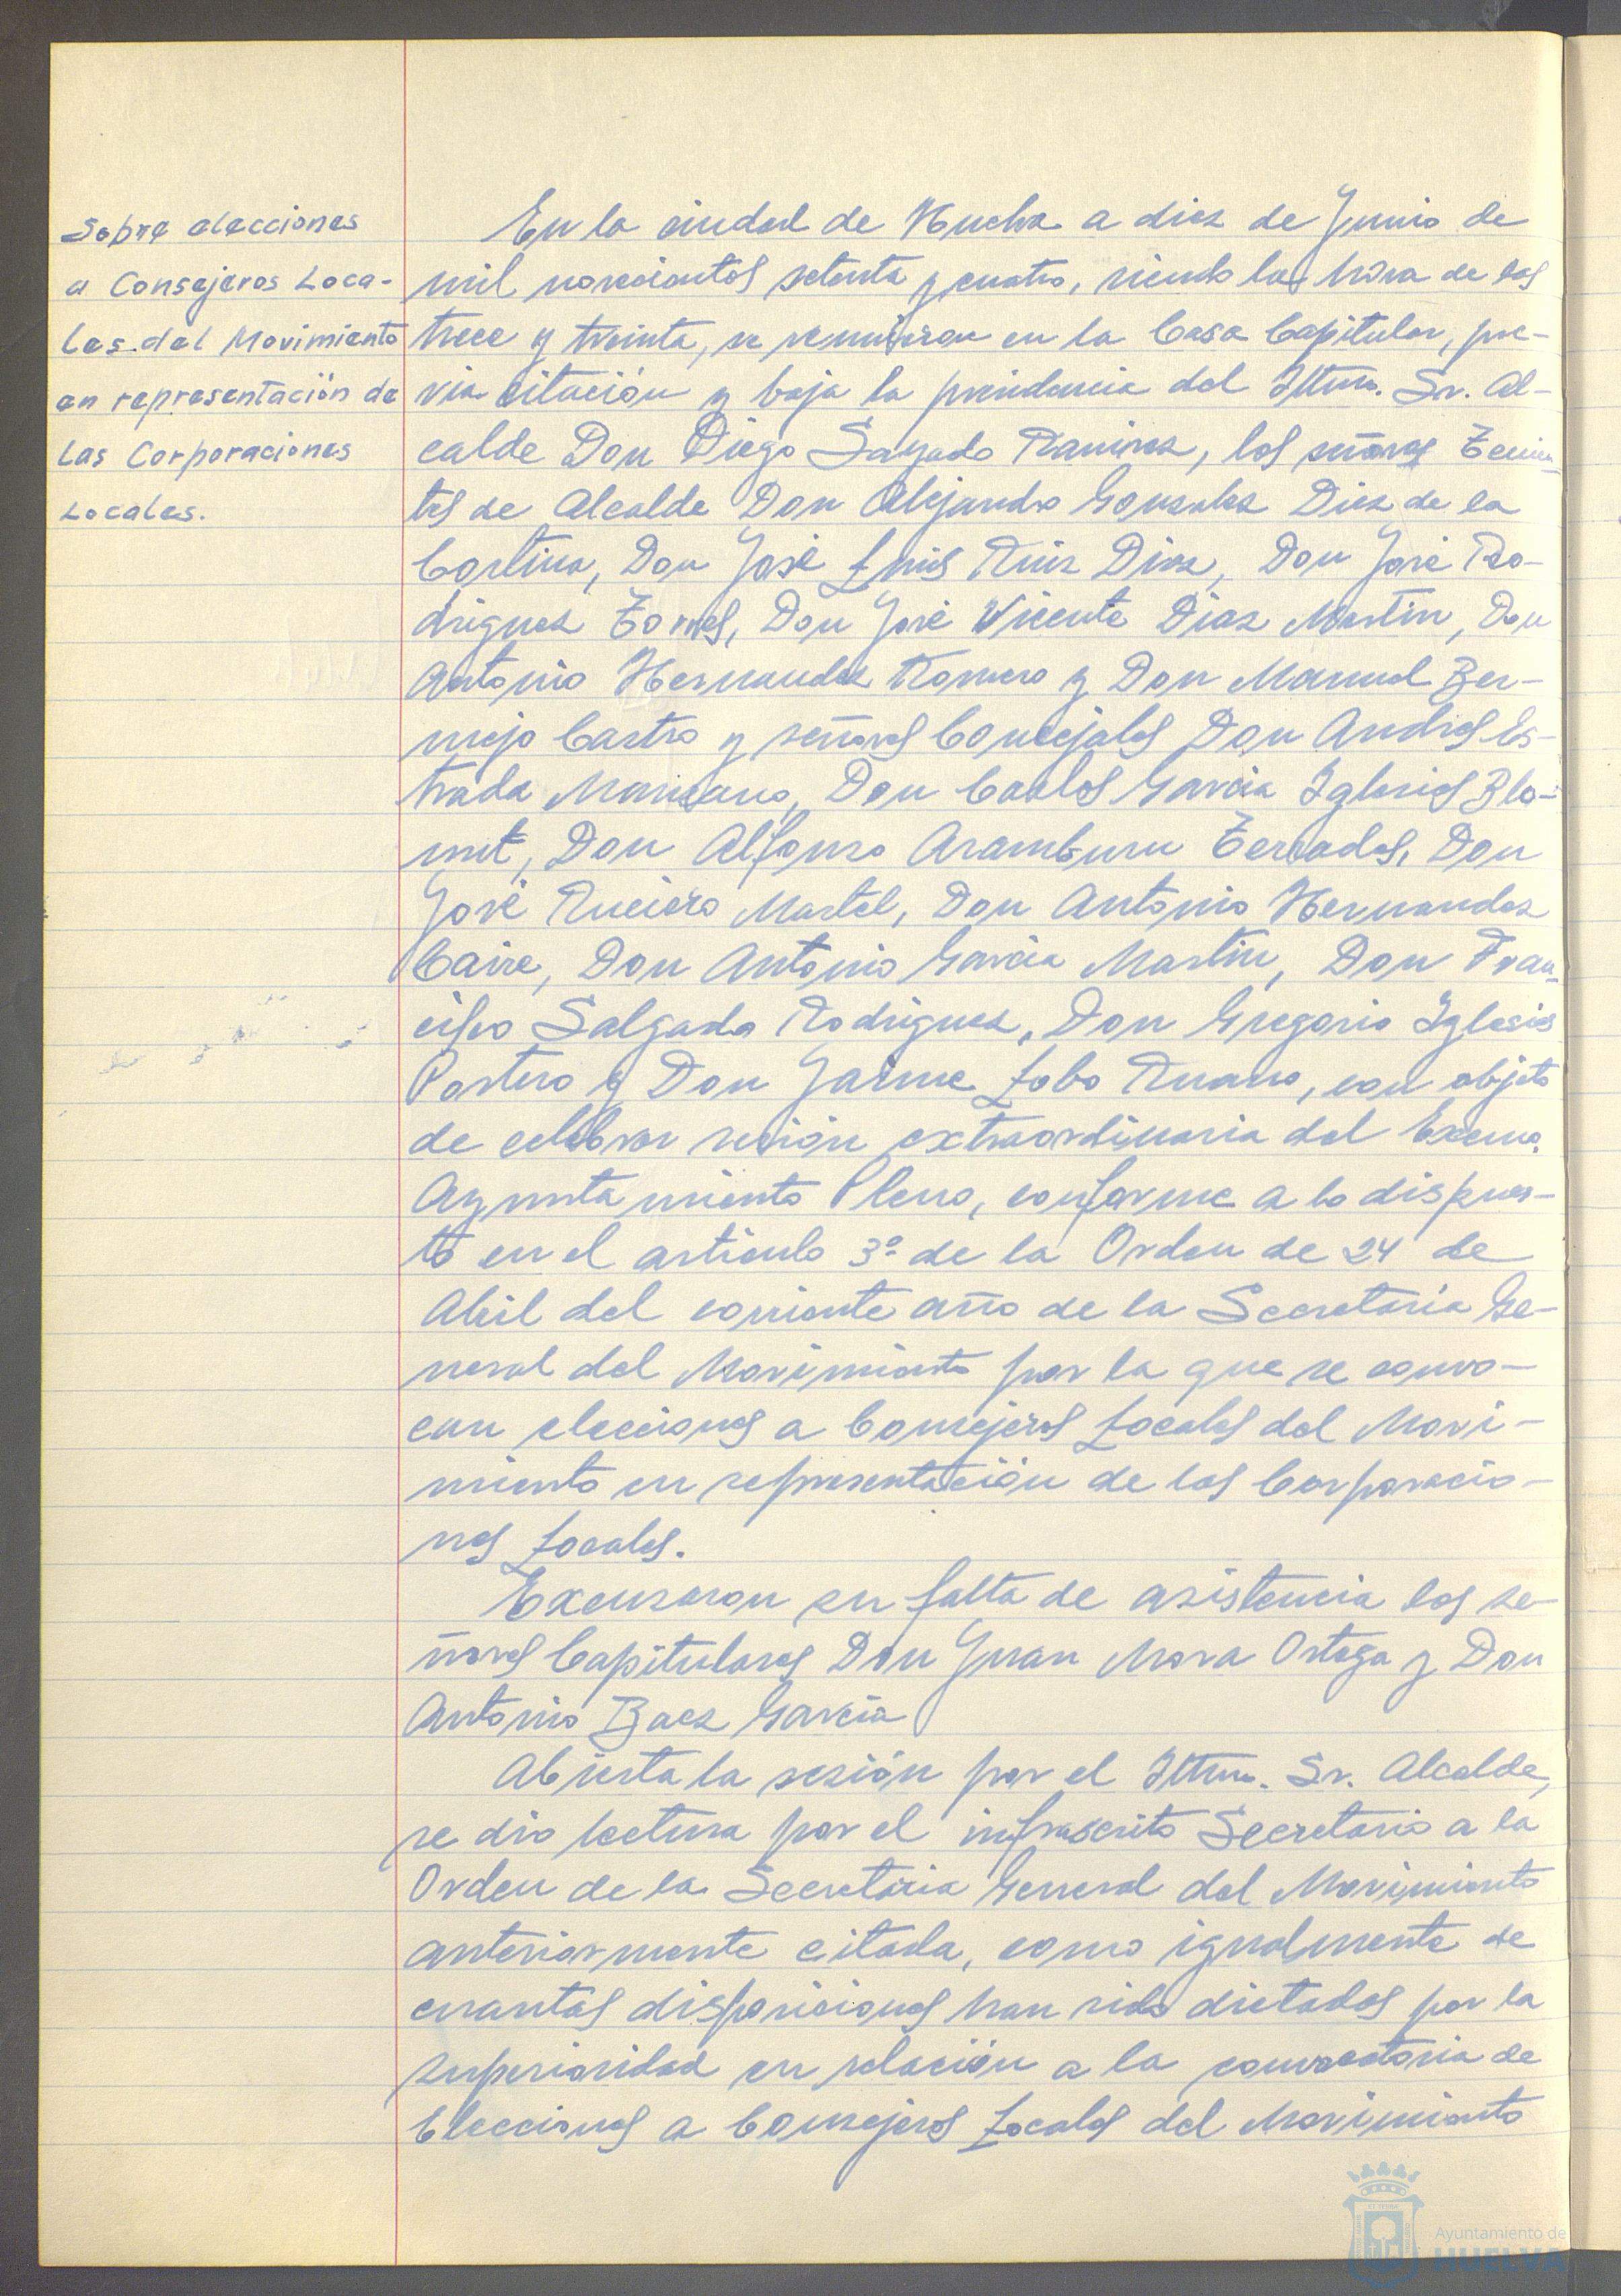 Sobre elecciones
a Consejeros Loca-
les del Movimiento
en representación de
las Corporaciones
Locales.
En la ciudad de Huelva a diez de Junio de
mil novecientos setenta y cuatro, siendo las hora de las
trece y treinta, se reunieron en la Casa Capitular, pre-
via citación y baja la presidencia del Iltmo. Sr. Al-
calde Don Diego Sayado Ramirez, los señores Tenien-
tes de Alcalde Don Alejandro Gonzalez Diez de la
Cortina, Don José Luis Ruiz Diaz, Don José Ro-
driguez Torres, Don José Vicente Diaz Martin, Don
Antonio Hernandez Romero y Don Manuel Ber-
mejo Castro y señores Concejales Don Andres Es-
trada Manzano, Don Carlos Garcia Iglesias Blo-
met, Don Alfonso Aramburu Terrades, Don
José Ruciero Martel, Don Antonio Hernandez
Caire, Don Antonio Garcia Martin, Don Fran-
cisco Salgado Rodriguez, Don Gregorio Iglesias
Portero y Don Jaime Lobo Ruano, con objeto
de celebrar sesión extraordinaria del Excmo.
Ayuntamiento Pleno, conforme a lo dispues-
to en el articulo 3º de la Orden de 24 de
Abril del corriente año de la Secretaria Ge-
neral del Movimiento por la que se convo-
can elecciones a Consejeros Locales del Movi-
miento en representación de las Corporacio-
nes Locales.
Excusaron su falta de asistencia los se-
ñores Capitulares Don Juan Mora Ortega y Don
Antonio Baez Garcia
Abierta la sesión por el Iltmo. Sr. Alcalde,
se dio lectura por el infrascrito Secretario a la
Orden de la Secretaria General del Movimiento
anteriormente citada, como igualmente de
cuantas disposiciones han sido dictadas por la
superioridad en relación a la convocatoria de
Elecciones a Consejeros Locales del Movimiento
Ayuntamiento de
HUELVA